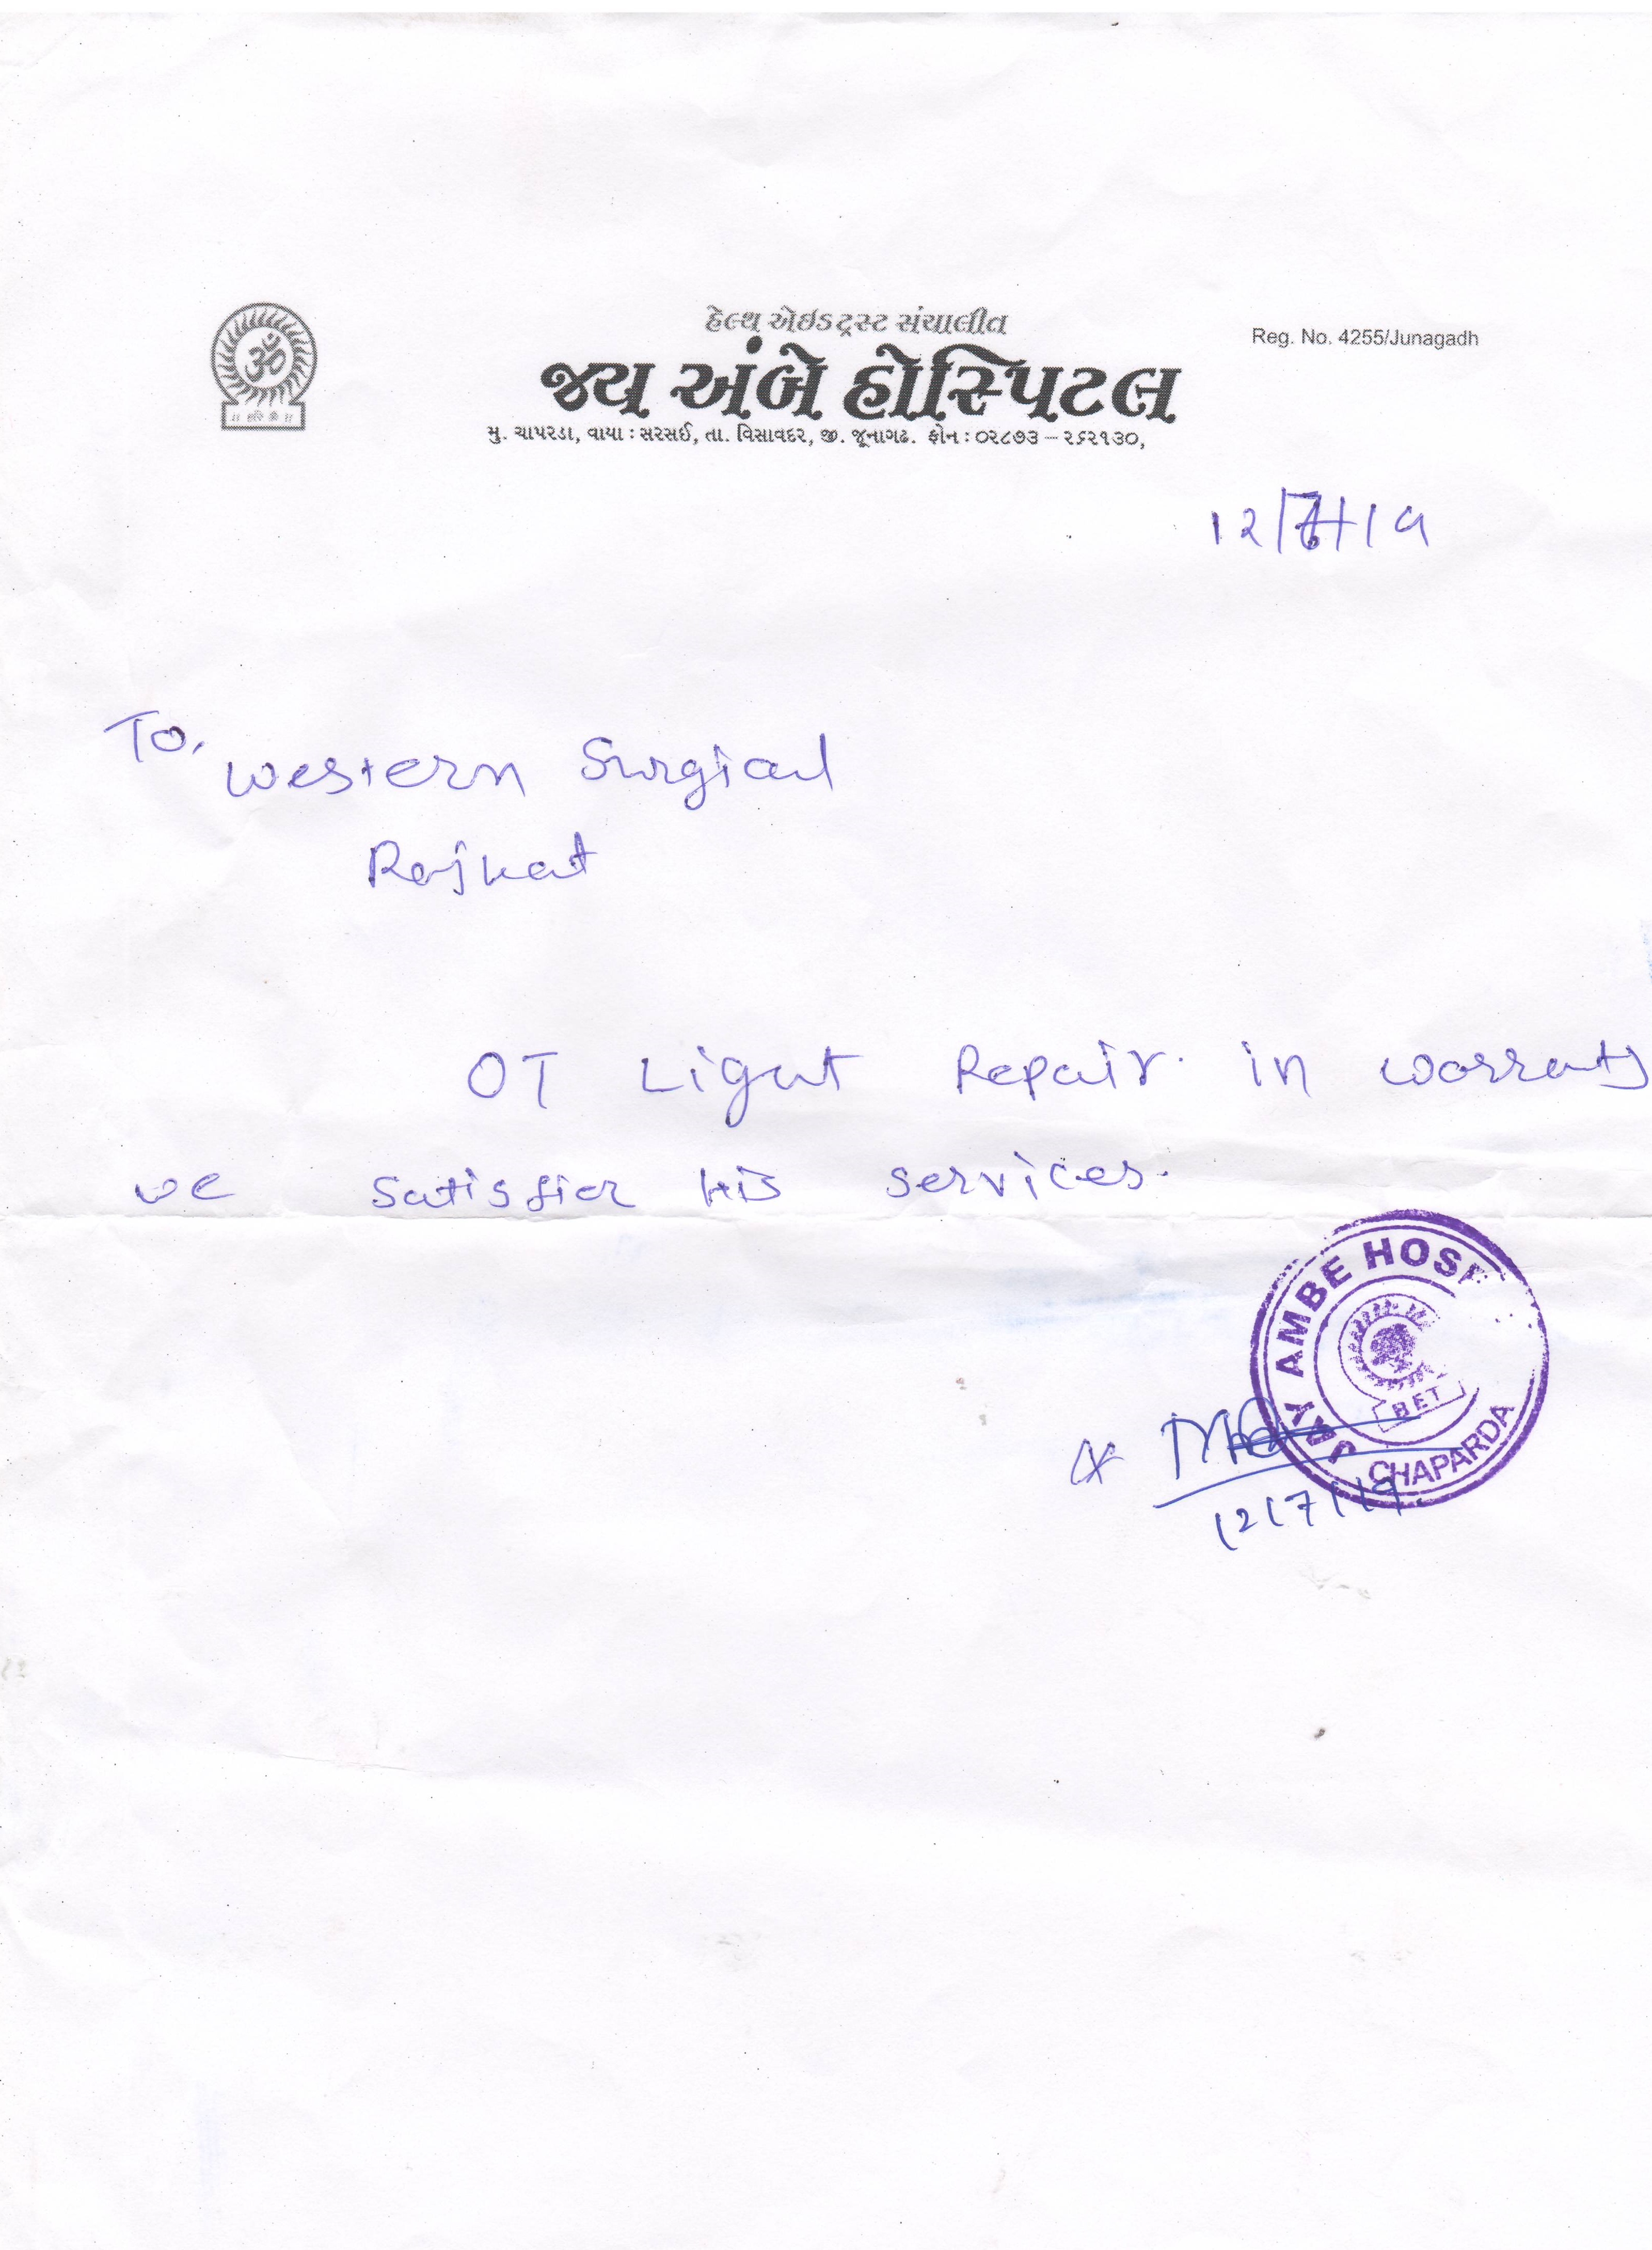 હેલ્થ એઇડ ટ્રસ્ટ સંચાલીત
Reg. No. 4255/Junagadh
જય અંબે હોસ્પિટલ
મુ. ચાપરડા, વાયા : સરસઈ, તા. વિસાવદર, જી. જૂનાગઢ. ફોન : ૦૨૮૭૩ – ૨૬૨૧૩૦,
12/7/19
To,
Western Surgical
Rajkot
OT Light Repair in warranty
we Satisfier his services.
JAY AMBE HOSP
BET
CHAPARDA
12/7/19.